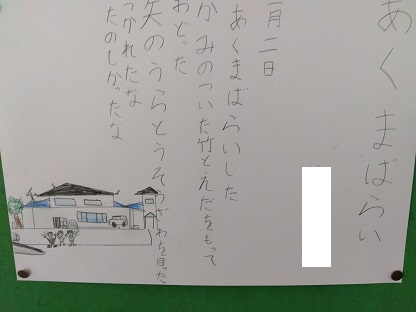 あくまばらい
一月二日
あくまばらいした
かみのついた竹とえだをもって
おどった
矢のうらとうそうざわを回った
つかれたな
たのしかったな